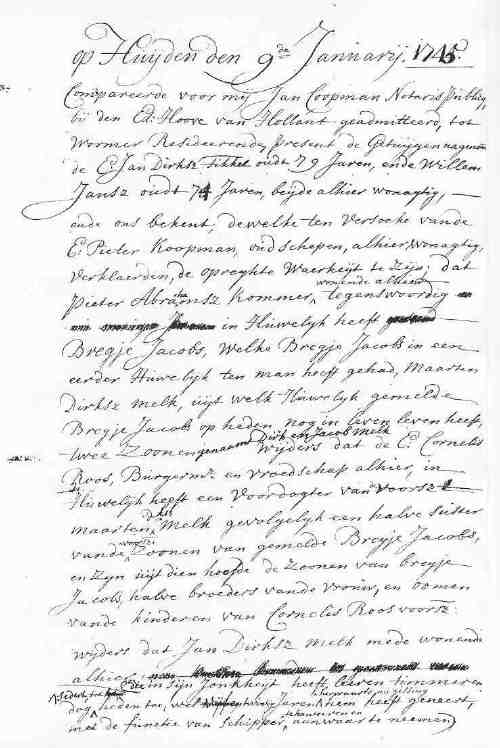 op Huijden den 9de Januarij. 1745.
Compareerde voor mij Jan Coopman Notaris Publicq,
bij den Ed: Hoove van Hollant geadmitteerd, tot
Wormer Resideerende, present de Getuijgen nagenomt
de E: Jan Dirksz Fikkel oudt 79 Jaren, ende Willem
Jansz oudt 74 Jaren, beijde alhier wonagtig,
ende ons bekent, dewelke ten Versoeke vande
E: Pieter Koopman, oud schepen, alhier wonagtig,
Verklaerden, de opreghte Waerheijt te Zijn, dat
wonende alhier
Pieter Abramsz Kommer, tegenswoordig
in Huwelijk heeft
Bregje Jacobs, Welke Bregje Jacobs in een
eerder Huwelijk ten man heeft gehad, Maarten
Dirksz Melk, uijt welk Huwelijk gemelde
Bregje Jacobs op heden nog in leven heeft,
twee Zoonen genaamd Dirk en Jacob Melk
wijders dat de E: Cornelis
Roos, Burgermr. en vroedschap alhier, in
Huwelijk heeft een Voordogter van voorsz
maarten Melk gevolgelijk een halve suster
vande Zoonen van gemelde Bregje Jacobs,
en Zijn uijt dien hoofde de Zoonen van bregje
Jacobs, halve broeders vande vrouw, en oomen
vande kinderen van Cornelis Roos voorsz:
wijders dat Jan Dirksz Melk mede wonende
alhier
in sijn Jonkheijt heeft timmeren
dog heden toe, Jaren hem heeft geneert,
met de functie van schipper, aanwaar te neemen